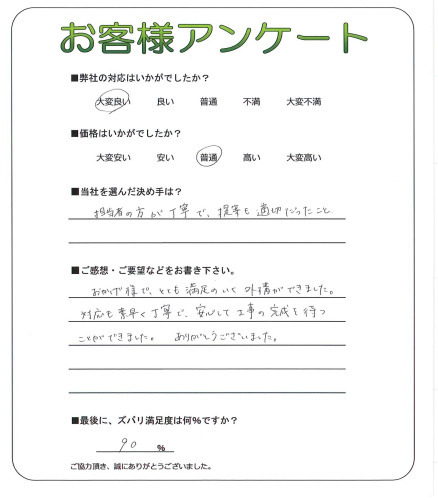 お客様アンケート
■弊社の対応はいかがでしたか？
大変良い 良い 普通 不満 大変不満
■価格はいかがでしたか？
大変安い 安い 普通 高い 大変高い
■当社を選んだ決め手は？
担当者の方が丁寧で、提案も適切だったこと
■ご感想・ご要望などをお書き下さい。
おかげ様で、とても満足のいく外構ができました。
対応も素早く丁寧で、安心して工事の完成を待つ
ことができました。 ありがとうございました。
■最後に、ズバリ満足度は何%ですか？
90 %
ご協力頂き、誠にありがとうございました。